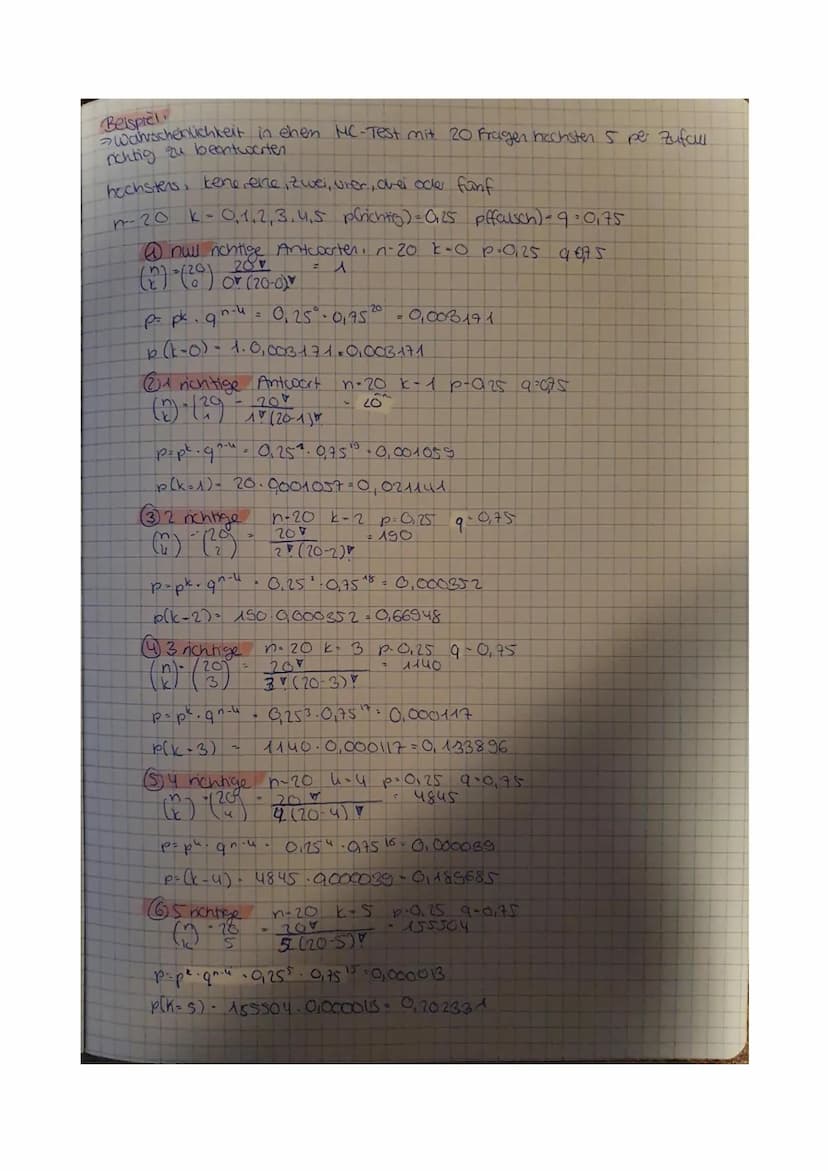 Beispiel:
→ Wahrscheinlichkeit in einen MC-Test mit 20 Fragen höchsten 5 per Zufall
richtig zu beantworten
höchstens: keine, eine, zwei, vier, drei oder fünf
n=20 k=0,1,2,3,4,5 p(richtig)=0,25 p(falsch)=q=0,75
① null richtige Antworten: n=20 k=0 p=0,25 q=0,75
(n k) = (20 0) 20! / 0!(20-0)! = 1
p= p^k · q^n-k = 0,25^0 · 0,75^20 = 0,003171
p(k=0) = 1·0,003171=0,003171
② 1 richtige Antwort n=20 k=1 p=0,25 q=0,75
(n k) = (20 1) = 20! / 1!(20-1)! = 20
p=p^k · q^n-k = 0,25^1 · 0,75^19 = 0,001059
p(k=1) = 20·0,001057=0,021141
③ 2 richtige n=20 k=2 p=0,25 q=0,75
(n k) = (20 2) = 20! / 2!(20-2)! = 190
p=p^k · q^n-k = 0,25^2 · 0,75^18 = 0,000352
p(k=2) = 190·0,000352=0,66948
④ 3 richtige n=20 k=3 p=0,25 q=0,75
(n k) = (20 3) = 20! / 3!(20-3)! = 1140
p=p^k · q^n-k = 0,25^3 · 0,75^17 = 0,000117
p(k=3) = 1140·0,000117=0,133896
⑤ 4 richtige n=20 k=4 p=0,25 q=0,75
(n k) = (20 4) = 20! / 4(20-4)! = 4845
p=p^k · q^n-k = 0,25^4 · 0,75^16 = 0,000039
p=(k=4) = 4845·0,000039=0,189685
⑥ 5 richtige n=20 k=5 p=0,25 q=0,75
(n k) = 20 5 = 20! / 5(20-5)! = 155504
p=p^k · q^n-k = 0,25^5 · 0,75^15 = 0,000013
p(k=5) = 155504·0,000013=0,202331